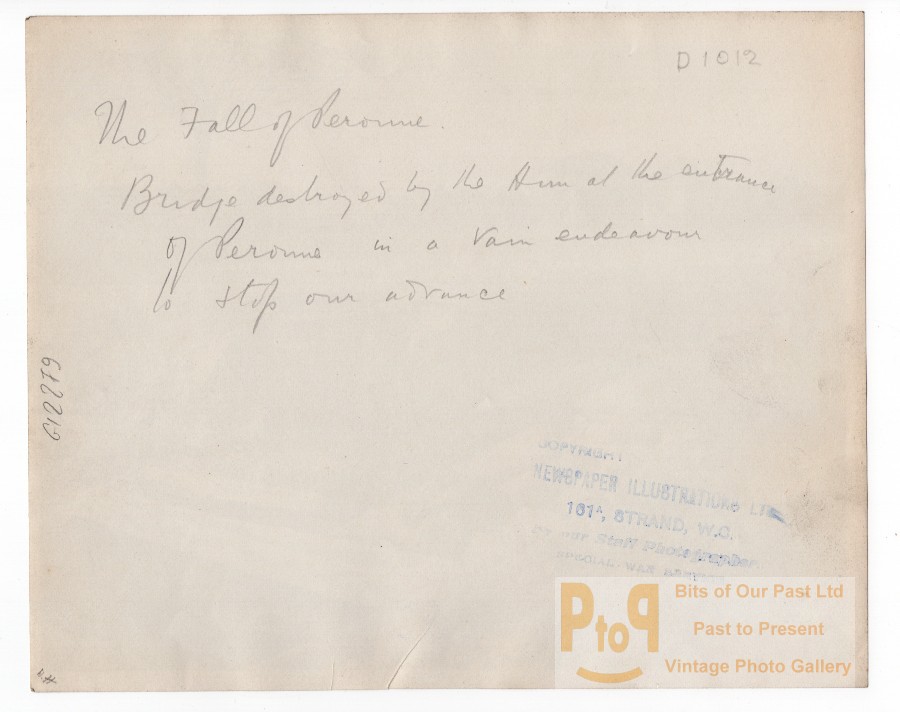 D1012
The Fall of Peronne.
Bridge destroyed by the Hun at the entrance
of Peronne in a vain endeavour
to stop our advance
G12279
COPYRIGHT
NEWSPAPER ILLUSTRATIONS LTD
161A, STRAND, W.C.
By our Staff Photographer
SPECIAL WAR
PtoP
Bits of Our Past Ltd
Past to Present
Vintage Photo Gallery